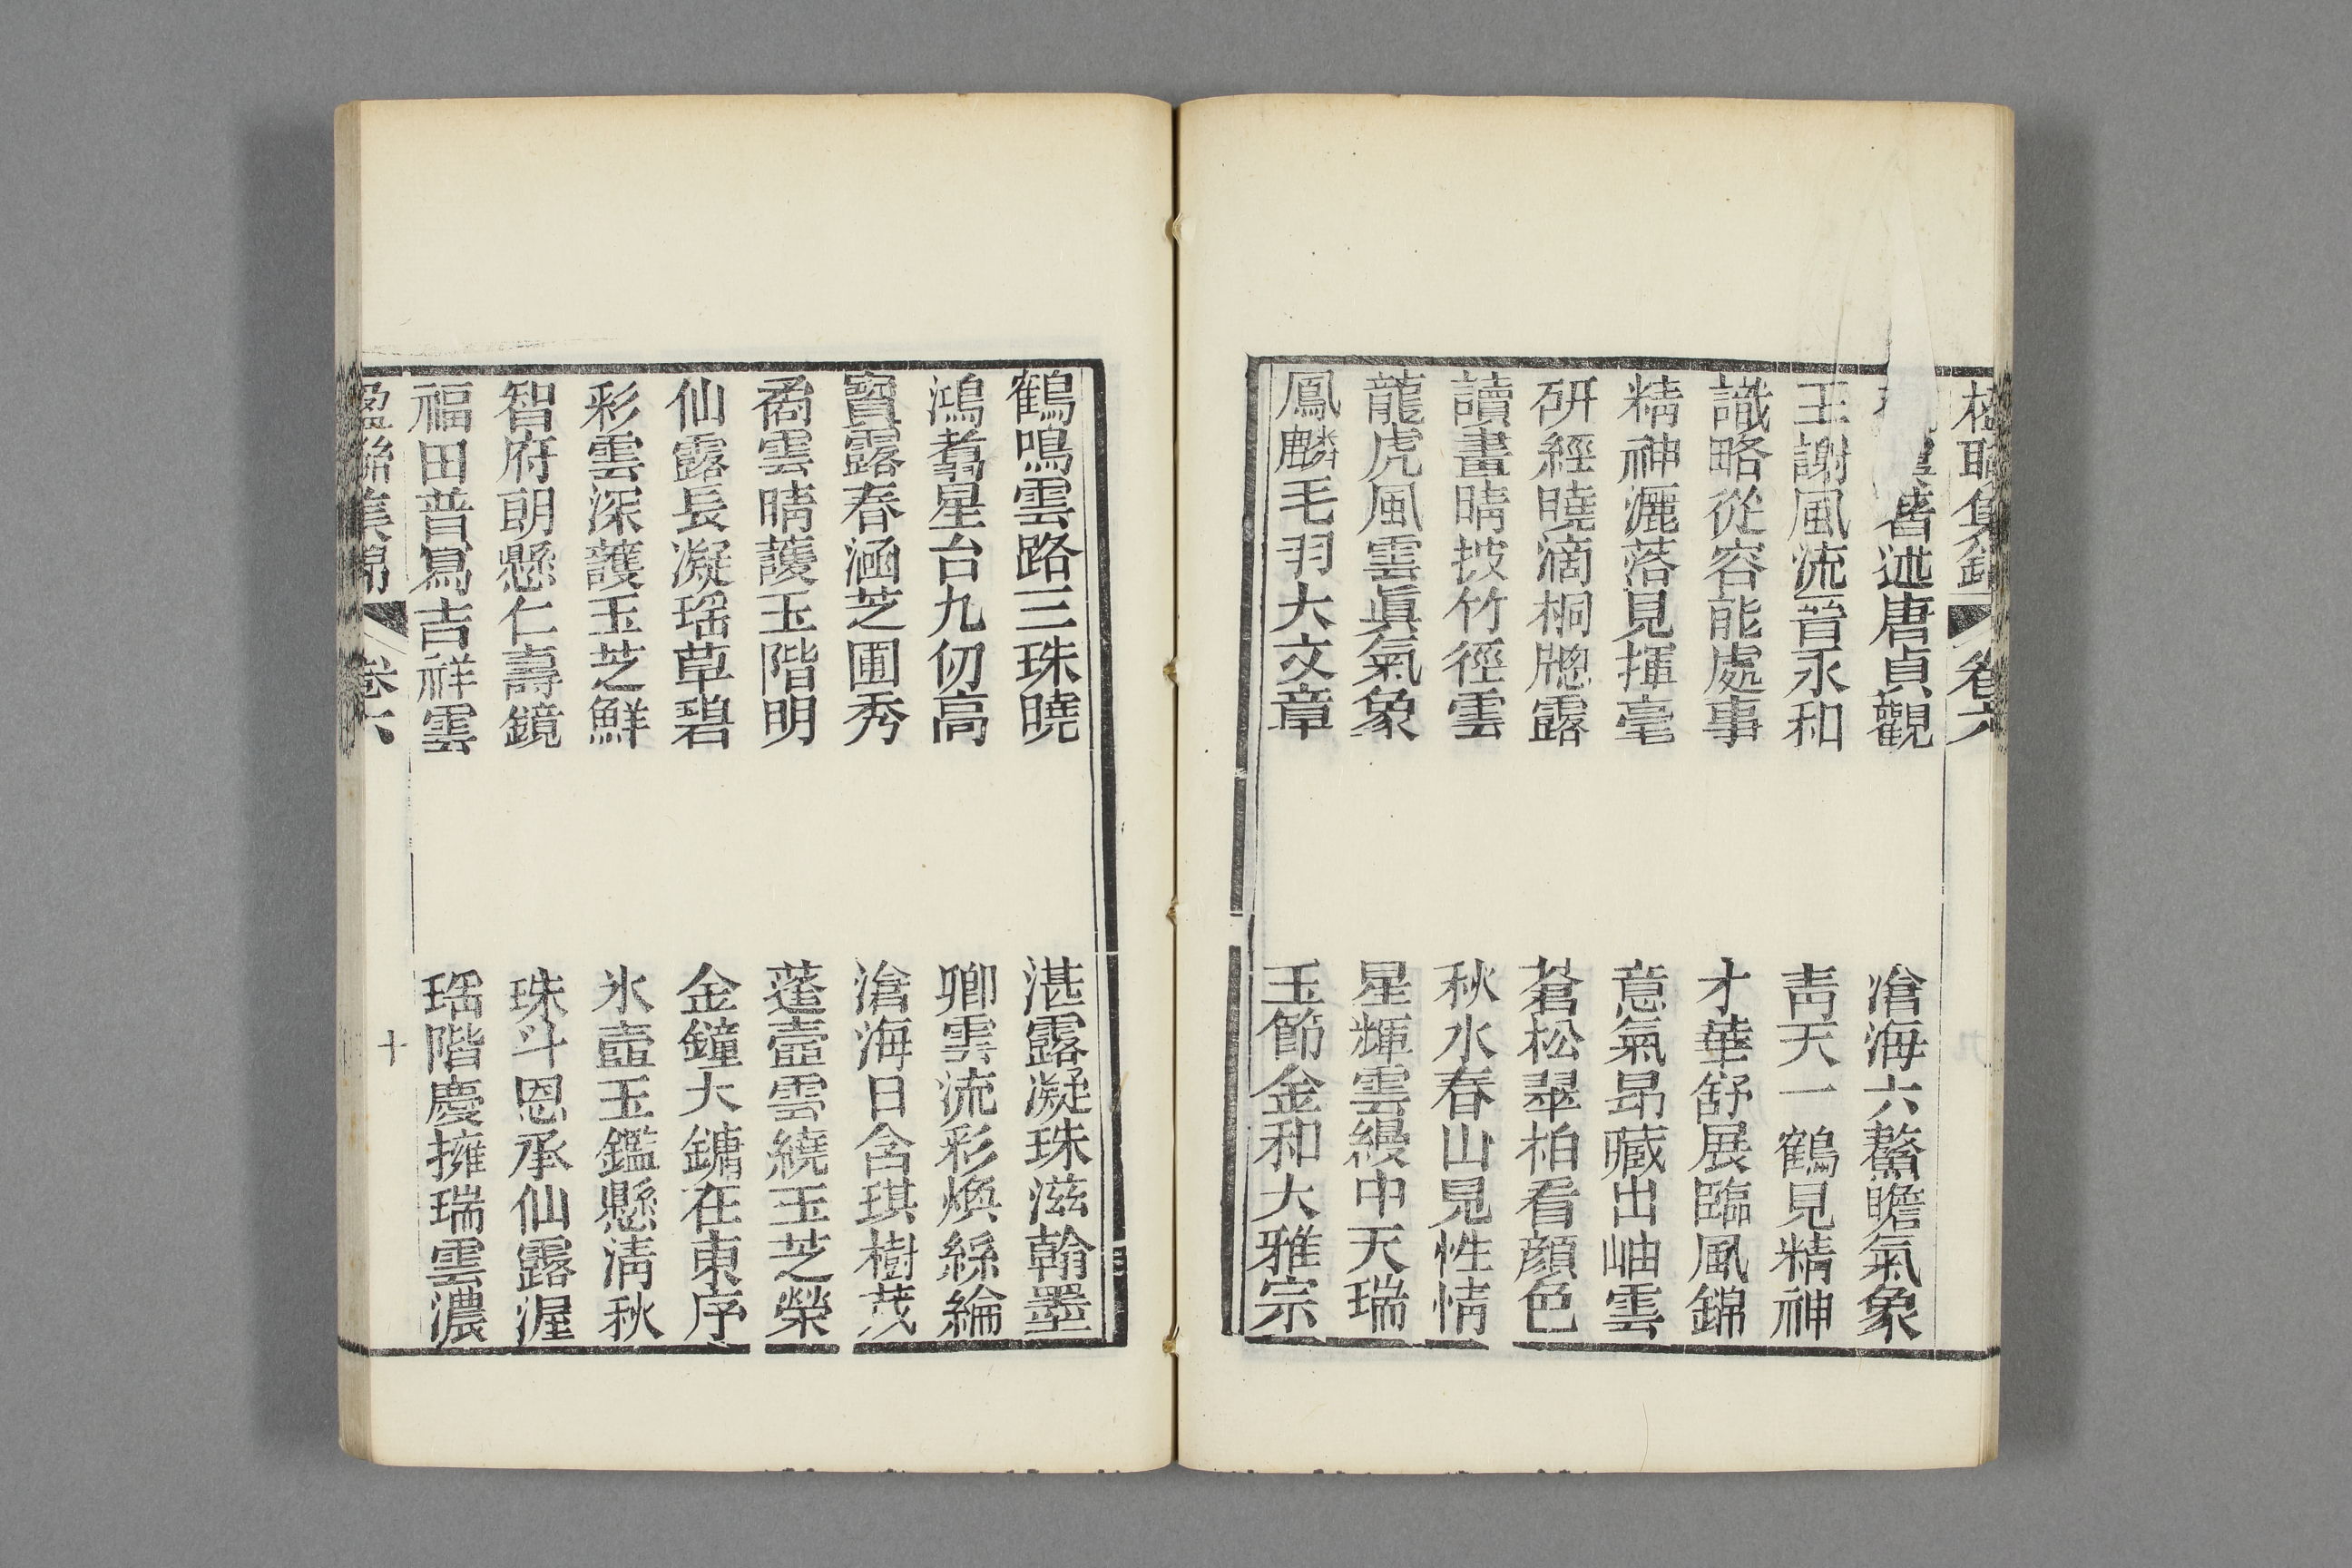 卷六
著述唐貞觀
滄海六鰲瞻氣象
王謝風流晉永和
靑天一鶴見精神
識略從容能處事
才華舒展臨風錦
精神灑落見揮毫
意氣昂藏出岫雲
硏經曉滴桐牕露
蒼松翠柏看顔色
讀畫晴披竹徑雲
秋水春山見性情
龍虎風雲眞氣象
星輝雲縵中天瑞
鳳麟毛羽大文章
玉節金和大雅宗
鶴鳴雲路三珠曉
湛露凝珠滋翰墨
鴻翥星台九仞高
卿雲流彩煥絲綸
寶露春涵芝圃秀
滄海日含琪樹茂
矞雲晴護玉階明
蓬壼雲繞玉芝榮
仙露長凝瑶草碧
金鐘大鏞在東序
彩雲深護玉芝鮮
氷壼玉鑑懸淸秋
智府朗懸仁壽鏡
珠斗恩承仙露渥
福田普寫吉祥雲
瑶階慶擁瑞雲濃
楹聯集錦
卷六
十